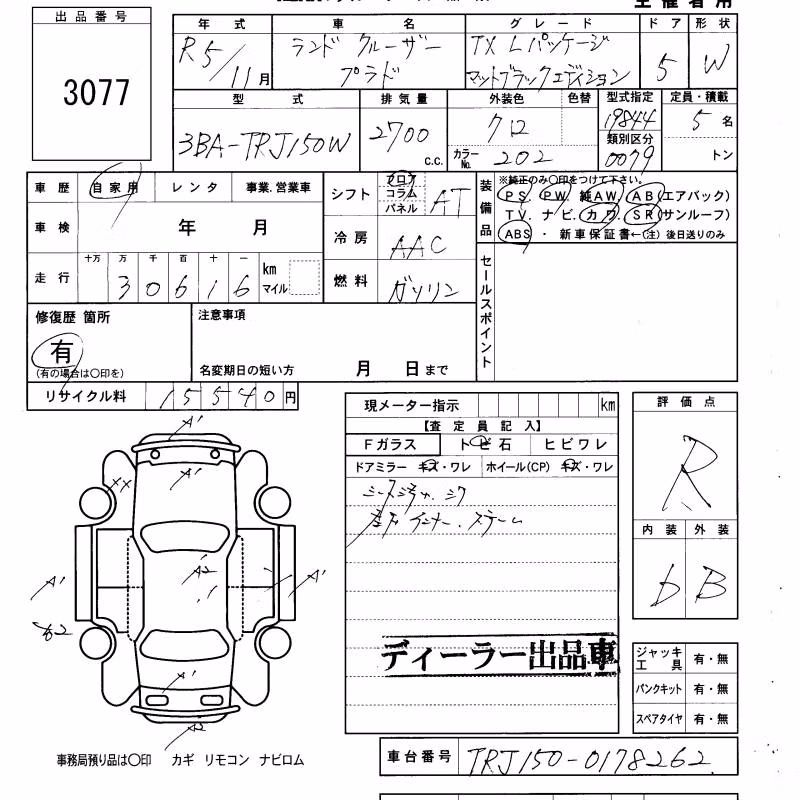 出品番号
3077
年式 車名 グレード ドア 形状
R5/11月 ランドクルーザープラド TX Lパッケージ マットブラックエディション 5 W
型式 排気量 外装色 色替 型式指定 定員・積載
3BA-TRJ150W 2700 c.c. クロ 19844 5名
カラーNo. 202 類別区分 0079 トン
車歴 自家用 レンタ 事業.営業車
シフト フロア コラム パネル AT
装備品 ※純正のみ○印をつけて下さい。
PS. PW. 純AW. AB(エアバック)
TV. ナビ. カワ. SR(サンルーフ)
ABS ・ 新車保証書←(注) 後日送りのみ
車検 年 月
冷房 AAC
走行 十万 万 千 百 十 一 km マイル
30616
燃料 ガソリン
セールスポイント
修復歴 箇所
有
(有の場合は○印を)
注意事項
名変期日の短い方 月 日まで
リサイクル料 15540円
現メーター指示 km
【査定員記入】
Fガラス トビ石 ヒビワレ
ドアミラー キズ・ワレ ホイール(CP) キズ・ワレ
インナー.ステーム
評価点
R
内装 外装
b B
A'
XX
A'
A2
A'
A'
A'
A2
ディーラー出品車
ジャッキ 工具 有・無
パンクキット 有・無
スペアタイヤ 有・無
事務局預り品は○印 カギ リモコン ナビロム
車台番号 TRJ150-0178262